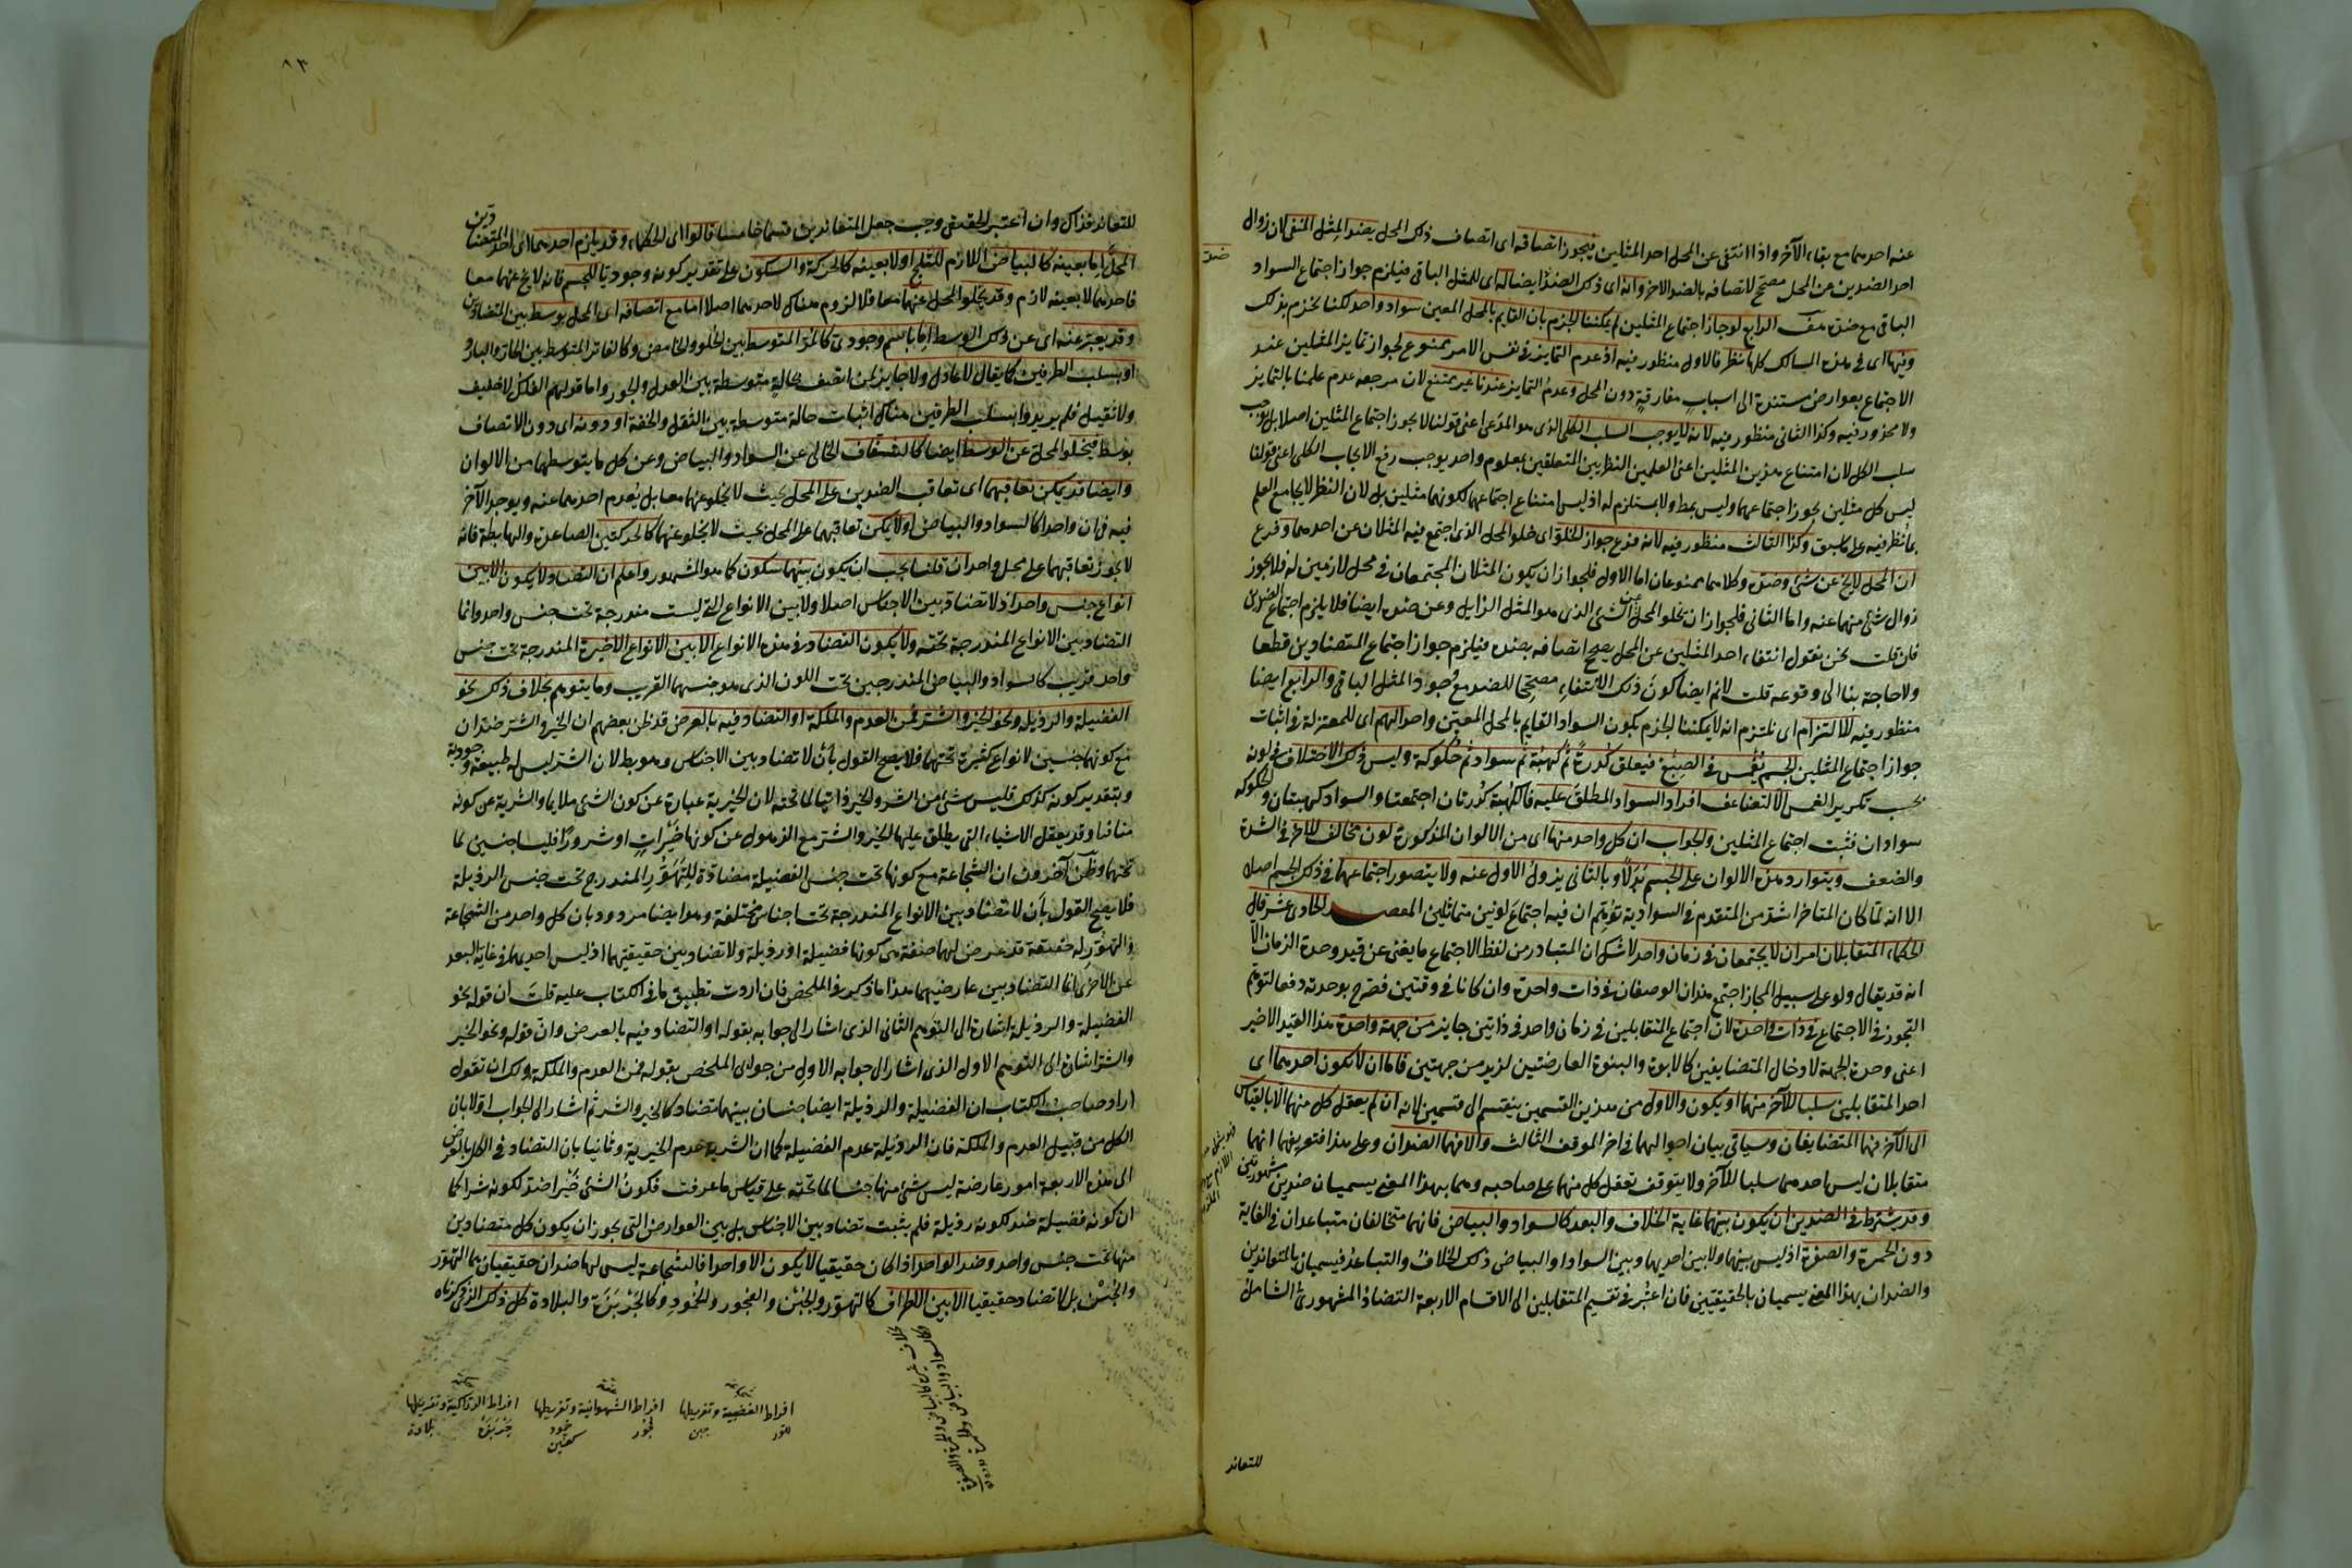 عنه احدهما مع بقاء الآخر واذا انتفى عن المحل احد المثلين فيجوز اتصافه اى اتصاف ذلك المحل بضد المثل المنتفى لان زوال
احد الضدين عن المحل مصحح لاتصافه بالضد الاخر وانه اى ذلك الضد ايضا له اى للمثل الباقى فيلزم جواز اجتماع السواد
ضد
الباقى مع ضده الرابع لو جاز اجتماع المثلين لم يمكننا الجزم بان القايم بالمحل المعين سواد واحد لكنا نجزم بذلك
وفيها اى فى هذه المسالك كلها نظر فالاول منظور فيه اذ عدم التمايز فى نفس الامر ممنوع لجواز تمايز المثلين عند
الاجتماع بعوارض مستندة الى اسباب مفارقة دون المحل وعدم التمايز عندنا غير ممتنع لان مرجعه عدم علمنا بالتمايز
ولا محذور فيه وكذا الثانى منظور فيه لانه لا يوجب السلب الكلى الذى هو المدعى اعنى قولنا لا يجوز اجتماع المثلين اصلا بل يوجب
سلب الكل لان امتناع هذين المثلين اعنى العلمين النظريين المتعلقين بمعلوم واحد يوجب رفع الايجاب الكلى اعنى قولنا
ليس كل مثلين يجوز اجتماعهما وليس بمط ولا يستلزم له اذ ليس امتناع اجتماعهما لكونهما مثلين بل لان النظر لا يجامع العلم
بما نظر فيه على ما سبق وكذا الثالث منظور فيه لانه فرع جواز الخلو اى خلو المحل الذى اجتمع فيه المثلان عن احدهما وفرع
ان المحل لا يخ عن شئ وضده وكلاهما ممنوعان اما الاول فلجواز ان يكون المثلان المجتمعان فى محل لازمين له فلا يجوز
زوال شئ منهما عنه واما الثانى فلجواز ان يخلو المحل عن الشئ الذى هو المثل الزايل وعن ضده ايضا فلا يلزم اجتماع الضدين
فان قلت نحن نقول انتفاء احد المثلين عن المحل يصحح اتصافه بضده فيلزم جواز اجتماع المتضادين قطعا
ولا حاجة بنا الى وقوعه قلت لانم ايضا كون ذلك الانتفاء مصححا للضد مع وجود المثل الباقى والرابع ايضا
منظور فيه للالتزام اى نلتزم انه لا يمكننا الجزم بكون السواد القايم بالمحل المعين واحدا لهم اى للمعتزلة فى اثبات
جواز اجتماع المثلين الجسم يغمس فى الصبغ فيعلق كدرة ثم كهبة ثم سواد ثم حلوكة وليس ذلك الاختلاف فى لونه
بحسب تكرير الغمس الا لتضاعف افراد السواد المطلق عليه فالكهبة كدرتان اجتمعتا والسواد كهبتان والحلوكه
سوادان فثبت اجتماع المثلين والجواب ان كل واحد منها اى من الالوان المذكورة لون مخالف للآخر فى الشدة
والضعف ويتوارد هذه الالوان على الجسم بدلا وبالثانى يزول الاول عنه ولا يتصور اجتماعهما فى ذلك الجسم اصلا
الا انه لما كان المتاخر اشد من المتقدم فى السوادية توهم ان فيه اجتماع لونين متماثلين المقصد الحادى عشر قال
الحكماء المتقابلان امران لا يجتمعان فى زمان واحد لا شك ان المتبادر من لفظ الاجتماع ما يغنى عن قيد وحدة الزمان الا
انه قد يقال ولو على سبيل المجاز اجتمع هذان الوصفان فى ذات واحدة وان كانا فى وقتين فصرح بوحدته دفعا لتوهم
التجوز فى الاجتماع فى ذات واحدة لان اجتماع المتقابلين فى زمان واحد فى ذاتين جايز من جهة واحدة هذا القيد الاخير
اعنى وحدة الجهة لادخال المتضايفين كالابوة والبنوة العارضتين لزيد من جهتين فاما ان لا يكون احدهما اى
احد المتقابلين سلبا للآخر منهما او يكون والاول من هذين القسمين ينقسم الى قسمين لانه ان لم يعقل كل منهما الا بالقياس
الى الآخر فهما المتضايفان وسياتى بيان احوالهما فى اخر الموقف الثالث والا فهما الضدان وعلى هذا فتعريفهما انهما
متقابلان ليس احدهما سلبا للآخر ولا يتوقف تعقل كل منهما على صاحبه وهما بهذا المعنى يسميان ضدين مشهوريين
وقد يشترط فى الضدين ان يكون بينهما غاية الخلاف والبعد كالسواد والبياض فانهما متخالفان متباعدان فى الغاية
دون الحمرة والصفرة اذ ليس بينهما ولا بين احديهما وبين السواد او البياض ذلك الخلاف والتباعد فيسميان بالمتعاندين
والضدان بهذا المعنى يسميان بالحقيقيين فان اعتبر فى تقسيم المتقابلين الى الاقسام الاربعة التضاد المشهورى الشامل
للتعاند
٨٣
للتعاند فذاك وان اعتبر الحقيقى وجب جعل المتعاندين قسما خامسا قالوا اى الحكماء وقد يلزم احدهما اى احد المتضادين
المحل اما بعينه كالبياض اللازم للثلج او لا بعينه كالحركة والسكون على تقدير كونه وجوديا للجسم فانه لا يخ عنهما معا
فاحدهما لا بعينه لازم وقد يخلو المحل عنهما معا فلا لزوم هناك لاحدهما اصلا اما مع اتصافه اى المحل بوسط بين المتضادين
وقد يعبر عنه اى عن ذلك الوسط اما باسم وجودى كالمز المتوسط بين الحلو والحامض وكالفاتر المتوسط بين الحار والبارد
او بسلب الطرفين كما يقال لا عادل ولا جاير لمن اتصف بحالة متوسطة بين العدل والجور واما قولهم الفلك لا خفيف
ولا ثقيل فلم يريدوا بسلب الطرفين هناك اثبات حالة متوسطة بين الثقل والخفة او دونه اى دون الاتصاف
بوسط فيخلو المحل عن الوسط ايضا كالشفاف الخالى عن السواد والبياض وعن كل ما يتوسطهما من الالوان
وايضا قد يمكن تعاقبهما اى تعاقب الضدين على المحل بحيث لا يخلو عنهما معا بل يعدم احدهما عنه ويوجد الآخر
فيه فى ان واحد كالسواد والبياض او لا يمكن تعاقبهما على المحل بحيث لا يخلو عنهما كالحركتين الصاعدة والهابطة فانه
لا يجوز تعاقبهما على محل واحد ان قلنا يجب ان يكون بينهما سكون كما هو المشهور واعلم ان التضاد لا يكون الا بين
انواع جنس واحد اذ لا تضاد بين الاجناس اصلا ولا بين الانواع التى ليست مندرجة تحت جنس واحد وانما
التضاد بين الانواع المندرجة تحته ولا يكون التضاد فى هذه الانواع الا بين الانواع الاخيرة المندرجة تحت جنس
واحد قريب كالسواد والبياض المندرجين تحت اللون الذى هو جنسهما القريب وما يتوهم بخلاف ذلك نحو
الفضيلة والرذيلة ونحو الخير والشر فمن العدم والملكة او التضاد فيه بالعرض قد ظن بعضهم ان الخير والشر ضدان
مع كونهما جنسين لانواع كثيرة تحتهما فلا يصح القول بان لا تضاد بين الاجناس وهو بط لان الشر ليس له طبيعة وجودية
وبتقدير كونه كذلك فليس شئ من الشر والخير ذاتيا لما تحته لان الخيرية عبارة عن كون الشئ ملايما والشرية عن كونه
منافيا وقد يعقل الاشياء التى يطلق عليها الخير والشر مع الذهول عن كونها خيرات او شرورا فليسا جنسين لما
تحتهما وظن آخرون ان الشجاعة مع كونها تحت جنس الفضيلة مضادة للتهور المندرج تحت جنس الرذيلة
فلا يصح القول بان لا تضاد بين الانواع المندرجة تحت اجناس مختلفة وهو ايضا مردود بان كل واحد من الشجاعة
والتهور له حقيقة قد عرض لها صفة من كونها فضيلة او رذيلة ولا تضاد بين حقيقتيهما اذ ليس احديهما فى غاية البعد
عن الاخرى انما التضاد بين عارضيهما هذا ما ذكر فى الملخص فان اردت تطبيق ما فى الكتاب عليه قلت ان قوله نحو
الفضيلة والرذيلة اشارة الى التوهم الثانى الذى اشار الى جوابه بقوله او التضاد فيه بالعرض وان قوله ونحو الخير
والشر اشارة الى التوهم الاول الذى اشار الى جوابه الاول من جوابى الملخص بقوله فمن العدم والملكة ولك ان تقول
اراد صاحب الكتاب ان الفضيلة والرذيلة ايضا جنسان بينهما تضاد كالخير والشر ثم اشار الى الجواب اولا بان
الكل من قبيل العدم والملكة فان الرذيلة عدم الفضيلة كما ان الشرية عدم الخيرية وثانيا بان التضاد فى الكل بالعرض
الى هذه الاربعة امور عارضة ليس شئ منها جنسا لما تحته على قياس ما عرفت فكون الشئ خيرا ضد لكونه شرا كما
ان كونه فضيلة ضد لكونه رذيلة فلم يثبت تضاد بين الاجناس بل بين العوارض التى يجوز ان يكون كل متضادين
منها تحت جنس واحد وضد الواحد اذا كان حقيقيا لا يكون الا واحدا فالشجاعة ليس لها ضدان حقيقيان هما التهور
والجبن بل لا تضاد حقيقيا الا بين الاطراف كالتهور والجبن والفجور والخمود وكالجربزة والبلادة كل ذلك الذى ذكرناه
افراط الغضبية وتفريطها
تهور جبن
افراط الشهوانية وتفريطها
فجور خمود
افراط الدراكية وتفريطها
جربزة بلادة